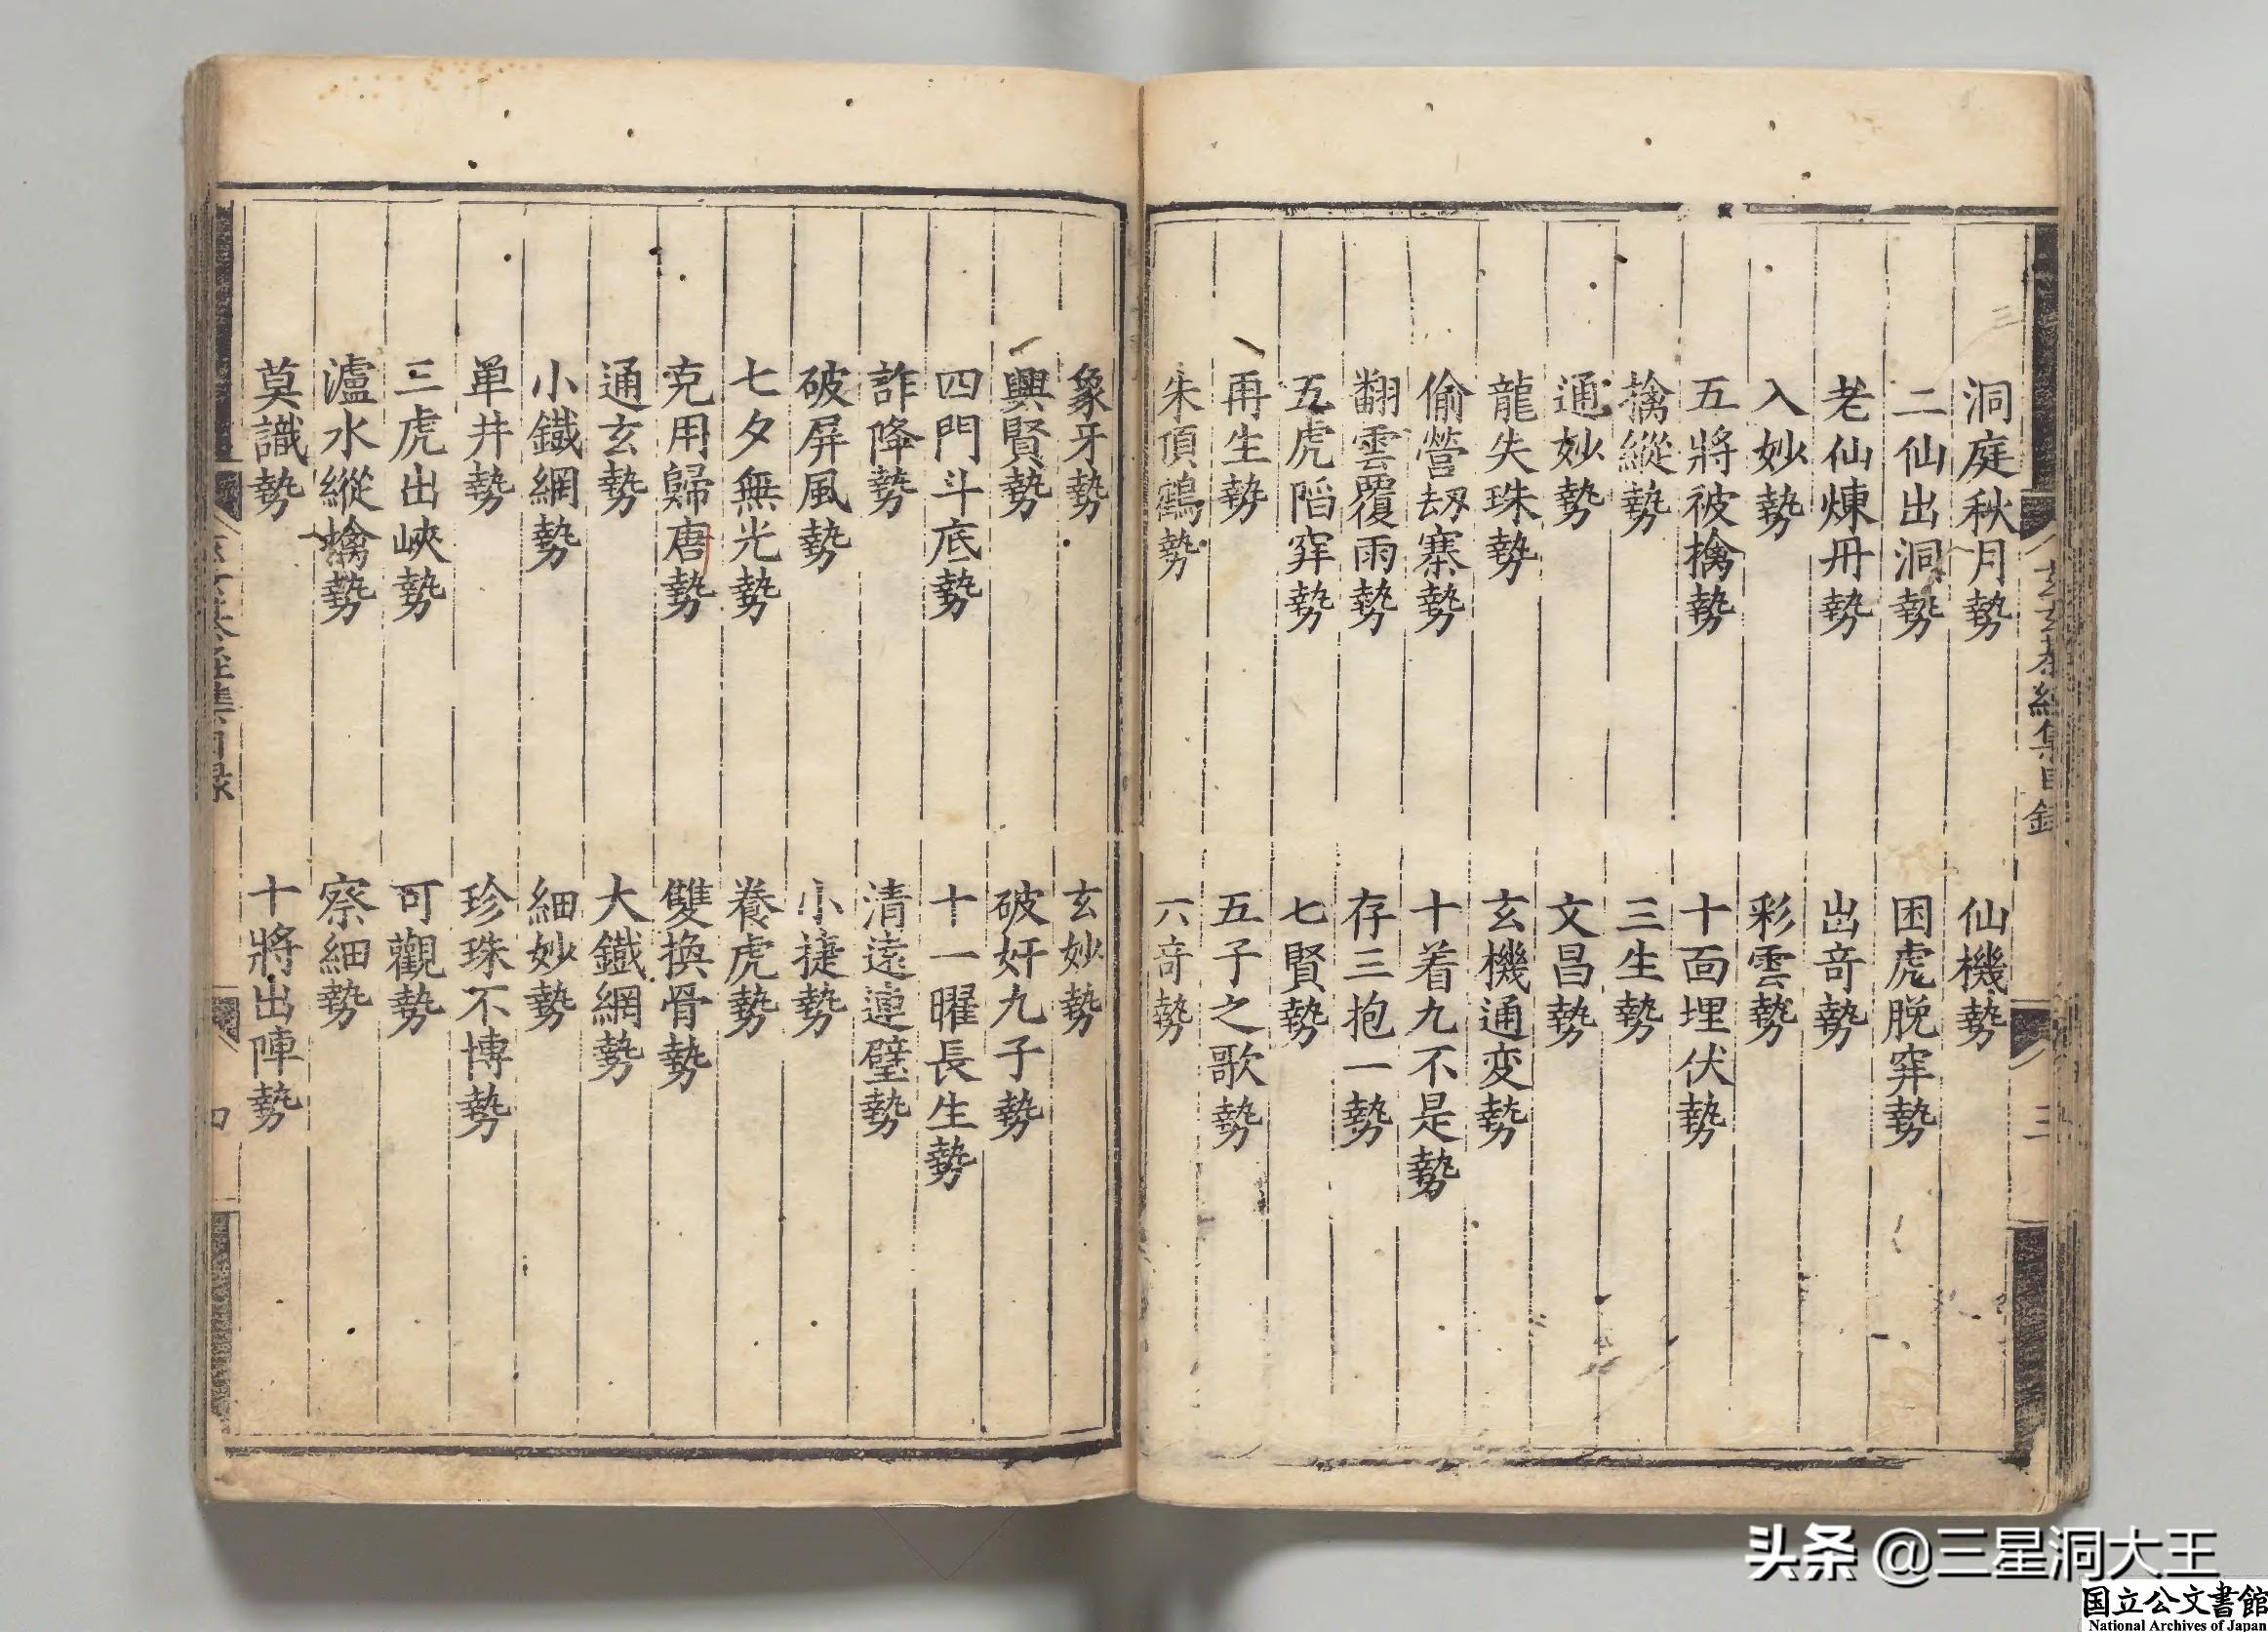 玄玄棊經集目錄
三
洞庭秋月勢
仙機勢
二仙出洞勢
困虎脱穽勢
老仙煉丹勢
出竒勢
入妙勢
彩雲勢
五將被擒勢
十面埋伏勢
擒縱勢
三生勢
通妙勢
文昌勢
龍失珠勢
玄機通变勢
偷營刼寨勢
十着九不是勢
翻雲覆雨勢
存三抱一勢
五虎䧟穽勢
七賢勢
再生勢
五子之歌勢
朱頂鶴勢
六竒勢
象牙勢
玄妙勢
興賢勢
破奸九子勢
四門斗底勢
十一曜長生勢
詐降勢
清遠連璧勢
破屏風勢
小捷勢
七夕無光勢
養虎勢
克用歸唐勢
雙換骨勢
通玄勢
大鐵網勢
小鐵網勢
細妙勢
单井勢
珍珠不博勢
三虎出峽勢
可觀勢
瀘水縱擒勢
察細勢
莫識勢
十將出陣勢
四
头条 @三星洞大王
国立公文書館
National Archives of Japan